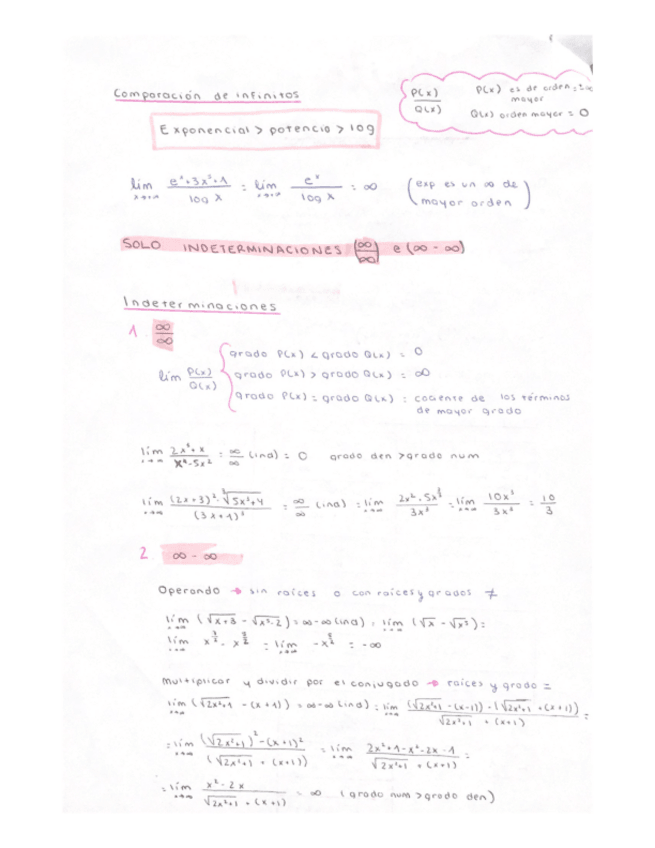 Comparación de infinitos
P(x)/Q(x) P(x) es de orden mayor
Q(x) orden mayor = 0
Exponencial > potencia > log
lím = lím e^x/log x = ∞ (exp es un ∞ de mayor orden)
SOLO INDETERMINACIONES (∞/∞) e (∞ - ∞)
Indeterminaciones
1. ∞/∞
lím P(x)/Q(x)
grado P(x) < grado Q(x) = 0
grado P(x) > grado Q(x) = ∞
grado P(x) = grado Q(x) = cociente de los términos
de mayor grado
lím = ∞/∞ (ind) = 0 grado den > grado num
lím = ∞/∞ (ind) = lím = lím = 10/3
2. ∞ - ∞
Operando → sin raíces o con raíces y grados ≠
lím (√x+3 - √x³-2) = ∞-∞ (ind) = lím (√x - √x³) =
lím = lím = -∞
Multiplicar y dividir por el conjugado → raíces y grado =
lím (√2x²+1 - (x+1)) = ∞-∞ (ind) = lím
= lím (√2x²+1)² - (x+1)² / (√2x²+1 + (x+1)) = lím 2x²+1-x²-2x-1 / √2x²+1 + (x+1) =
= lím x²-2x / √2x²+1 + (x+1) = ∞ (grado num > grado den)